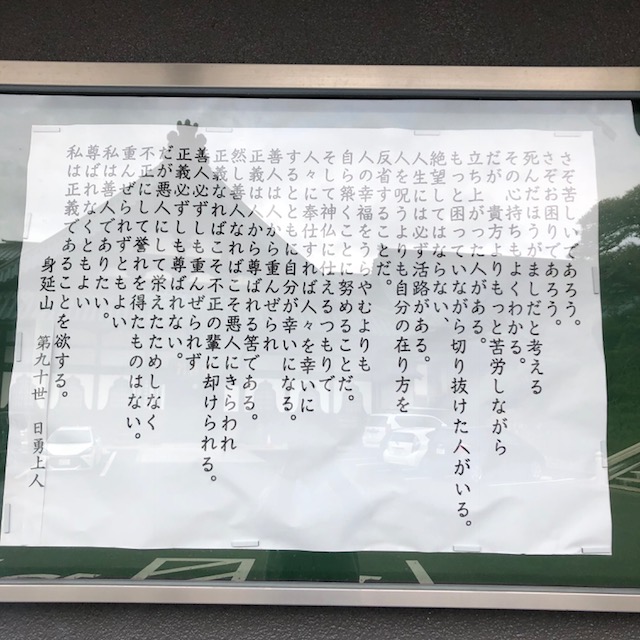 さぞ苦しいであろう。
さぞお困りであろう。
死んだほうがましだと考える
その心持ちもよくわかる。
だが貴方よりもっと苦労しながら
立ち上がった人がある。
もっと困っていながら切り抜けた人がいる。
絶望してはならない、
人生には必ず活路がある。
人を呪うよりも自分の在り方を
反省することだ。
人の幸福をうらやむよりも
自ら築くことに努めることだ。
そして神仏に仕えるつもりで
人々に奉仕すれば人々を幸いに
するとともに自分が幸いになる。
善人は人から重んぜられ
正義は人から尊ばれる筈である。
然し善人なればこそ悪人にきらわれ
正義なればこそ不正の輩に却けられる。
善人必ずしも重んぜられず
正義必ずしも尊ばれない。
だが悪人にして栄えたためしなく
不正にして誉れを得たものはない。
重んぜられずともよい
私は善人でありたい。
尊ばれなくともよい
私は正義であることを欲する。
身延山 第九十世 日勇上人